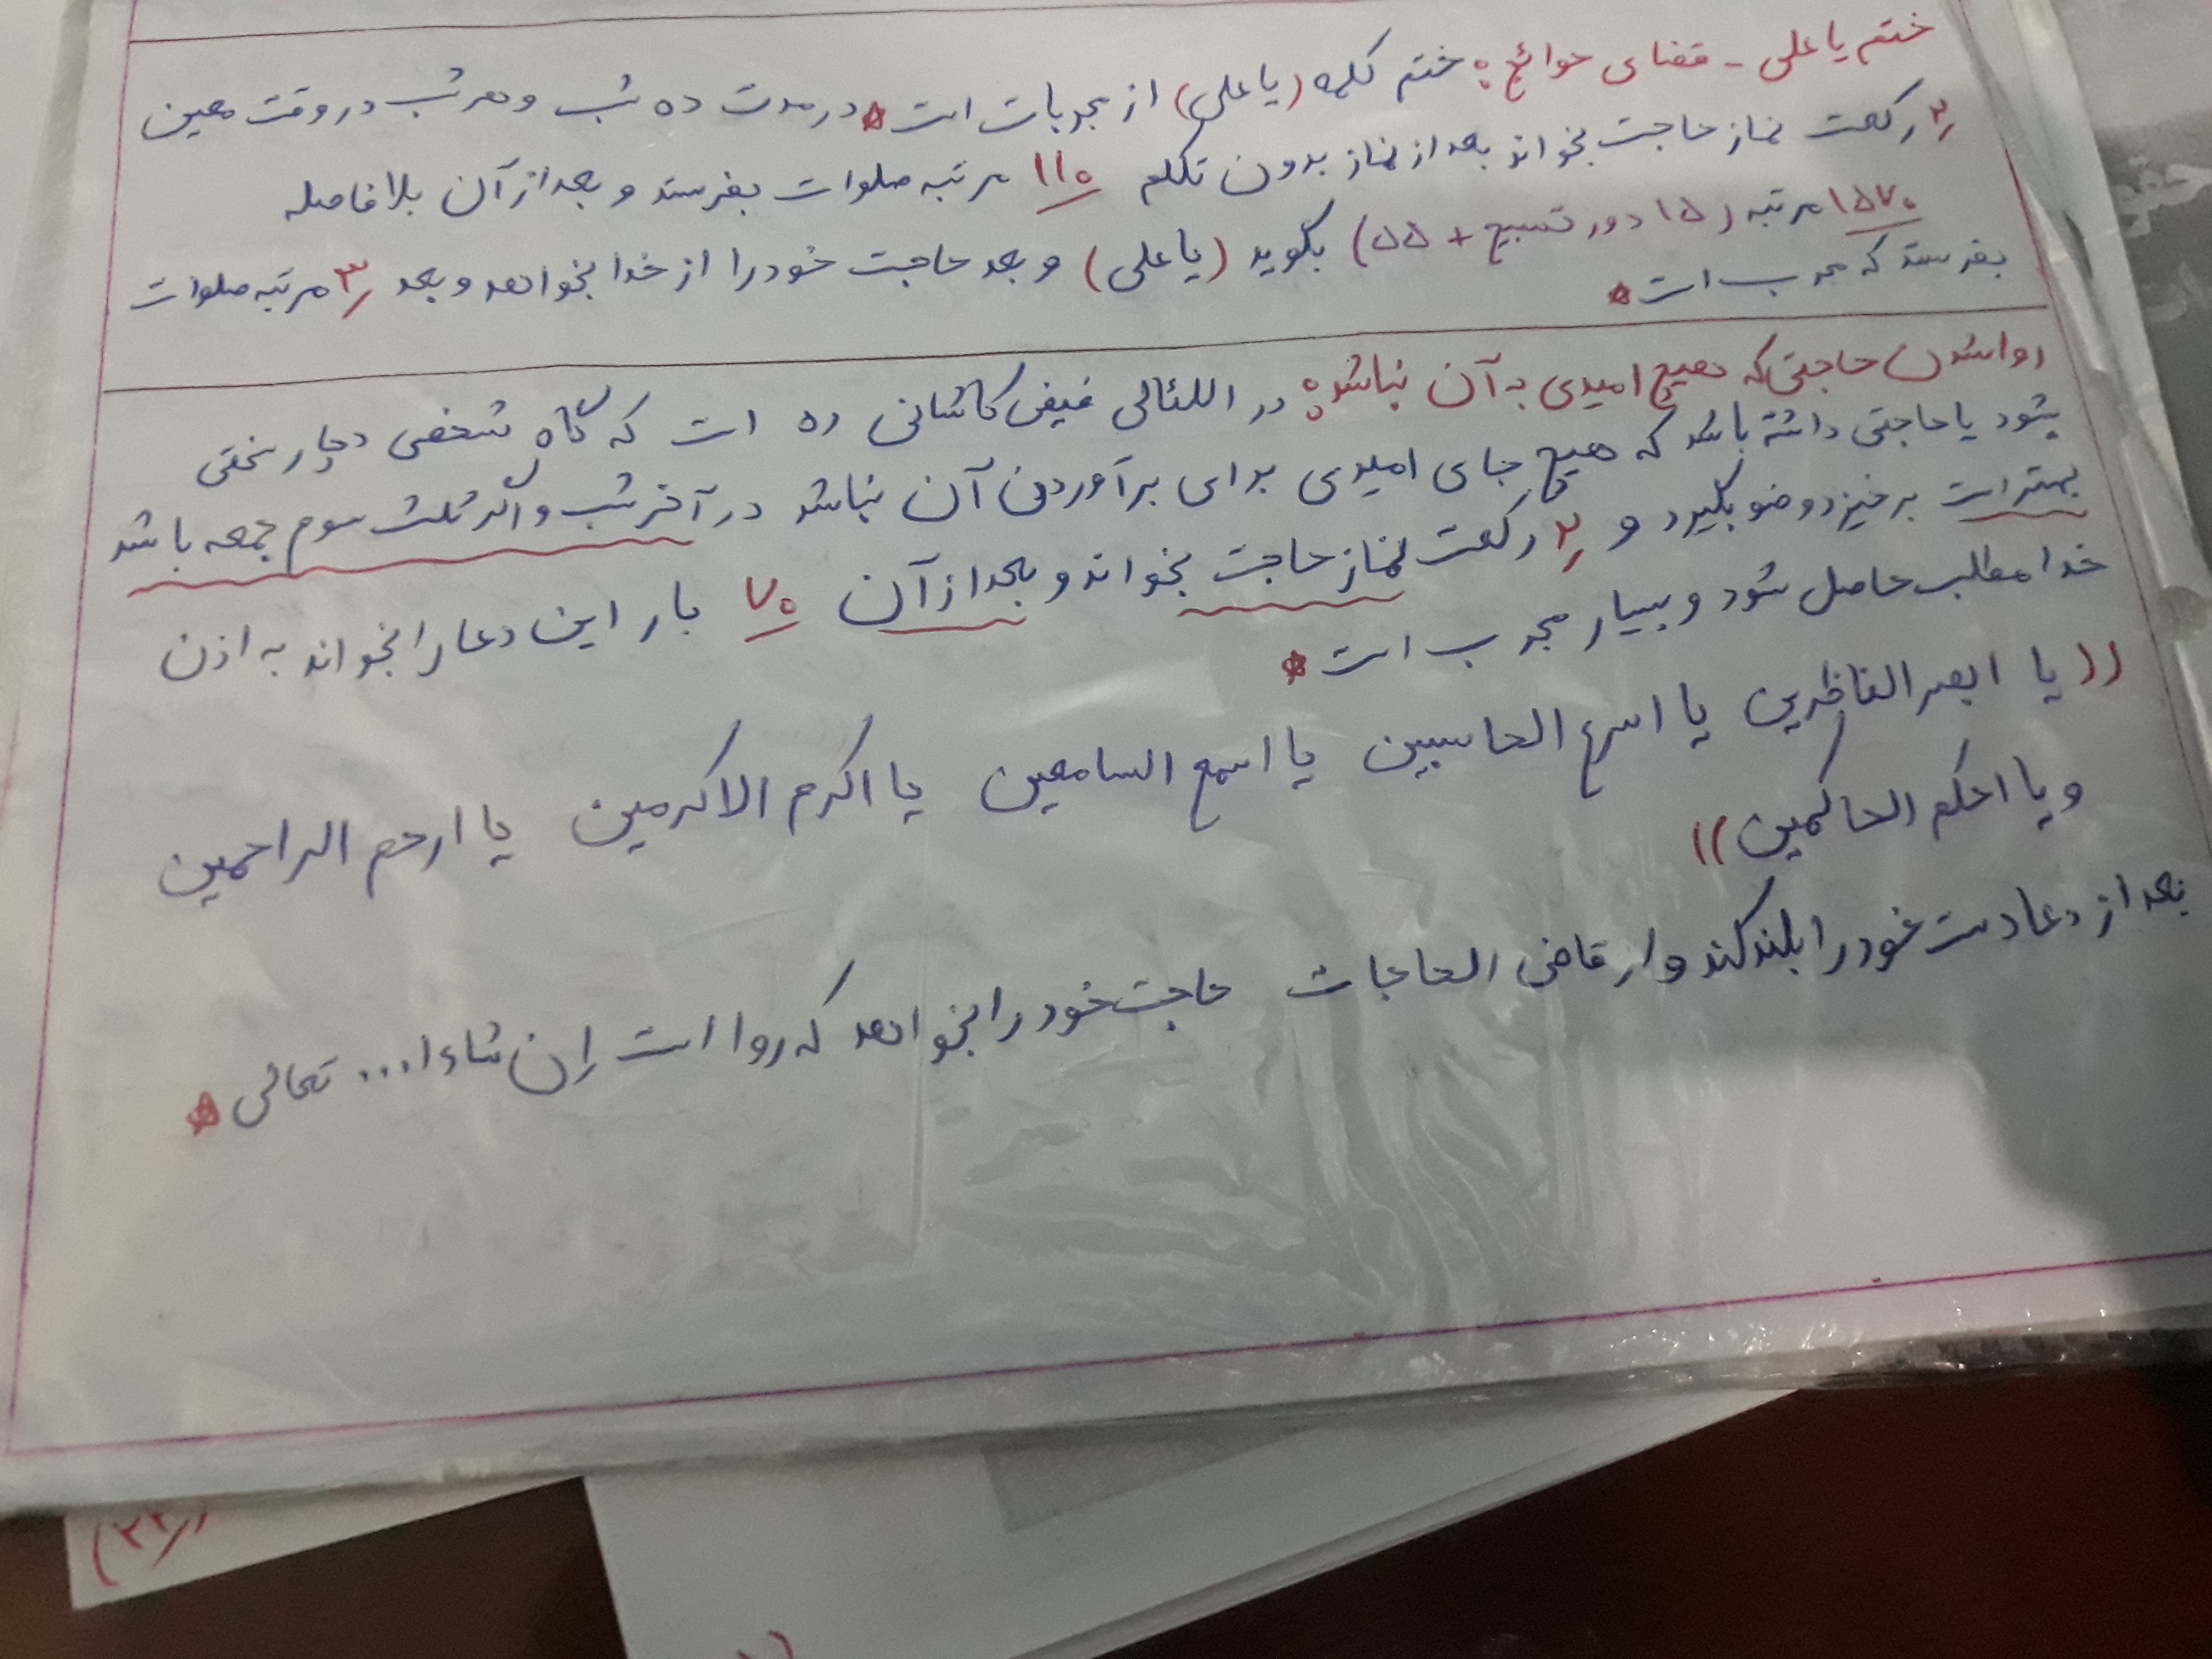 ختم یا علی - قضای حوائج: ختم کلمه (یا علی) از مجربات است * در مدت ده شب و هر شب در وقت معین
۲ رکعت نماز حاجت بخواند بعد از نماز بدون تکلم ۱۱۰ مرتبه صلوات بفرستد و بعد از آن بلافاصله
۱۵۷۰ مرتبه (۱۵ دور تسبیح + ۵۵) بگوید (یا علی) و بعد حاجت خود را از خدا بخواهد و بعد ۳ مرتبه صلوات
بفرستد که مجرب است *
روا شدن حاجتی که هیچ امیدی به آن نباشد: در اللئالی فیض کاشانی ره است که گاه شخصی دچار سختی
بشود یا حاجتی داشته باشد که هیچ جای امیدی برای برآوردن آن نباشد در آخر شب و اگر ثلث سوم جمعه باشد
بهتر است برخیزد وضو بگیرد و ۲ رکعت نماز حاجت بخواند و بعد از آن ۷۰ بار این دعا را بخواند به اذن
خدا مطلب حاصل شود و بسیار مجرب است *
((یا ابصر الناظرین یا اسرع الحاسبین یا اسمع السامعین یا اکرم الاکرمین یا ارحم الراحمین
و یا احکم الحاکمین))
بعد از دعا دست خود را بلند کند و از قاضی الحاجات حاجت خود را بخواهد که روا است إن شاء ا... تعالی *